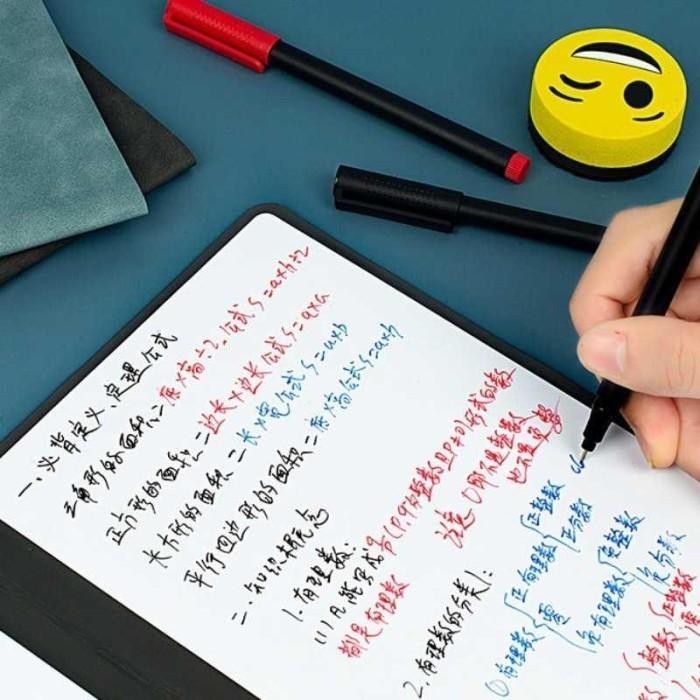 一、必背定义、定理公式
三角形的面积=底×高÷2. 公式S=a×h÷2
正方形的面积=边长×边长 公式S=a×a
长方形的面积=长×宽 公式S=a×b
平行四边形的面积=底×高 公式S=a×h
二、知识概念
1. 有理数:
(1)凡能写成 q/p (p,q为整数且p≠0)形式的数
都是有理数
注意 0即不是整数
也不是负数
2. 有理数的分类1:
①有理数 正有理数 正整数
正分数
零
负有理数 负整数
负分数
整数 正整数